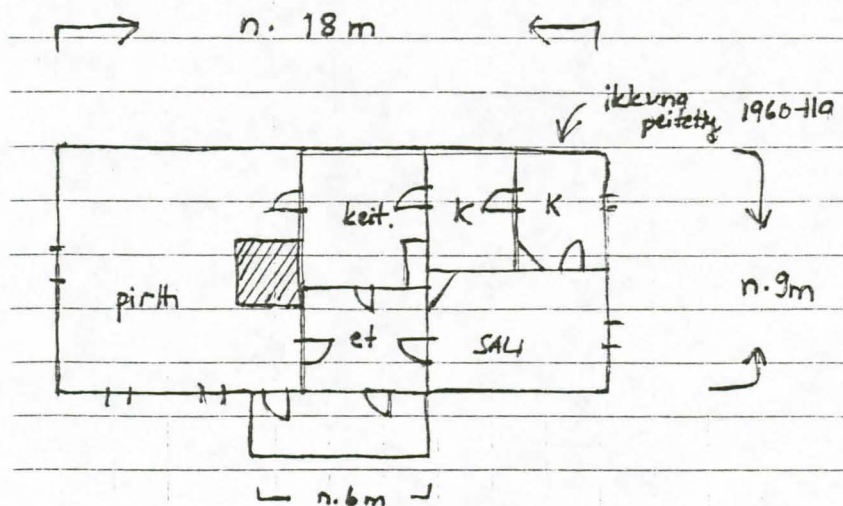 n. 18 m
ikkuna
peitetty 1960-119
keit. K K
n. 9m
pirtti
et SALI
n. 6m